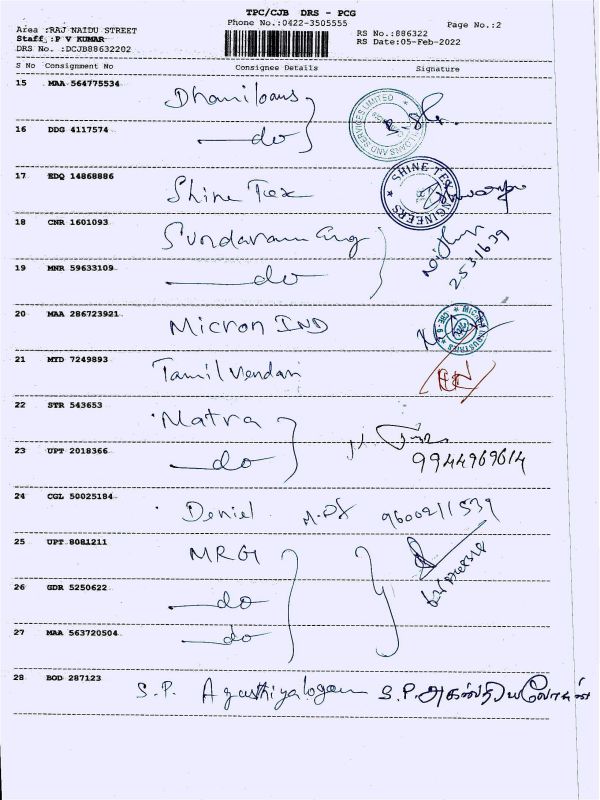 TPC/CJB DRS - PCG
Phone No.:0422-3505555
Page No.:2
Area :RAJ NAIDU STREET
Staff :P V KUMAR
DRS No. :DCJB88632202
RS No.:886322
RS Date:05-Feb-2022
S No Consignment No Consignee Details Signature
15 MAA 564775534 Dhaniloans
16 DDG 4117574 do
LOANS AND SERVICES LIMITED
17 EDQ 14868886 Shine Tex
SHINE TEX ENGINEERS
18 CNR 1601093 Sundaram Eng
19 MNR 59633109 do
20 MAA 286723921 Micron IND
21 MYD 7249893 Tamil Vendan
22 STR 543653 Matra
23 UPT 2018366 do 9944969614
24 CGL 50025184 Deniel 9600211539
25 UPT 8081211 MRG
26 GDR 5250622 do
27 MAA 563720504 do
28 BOD 287123 S.P. Agasthiyalogan S.P.அகஸ்தியலோகன்